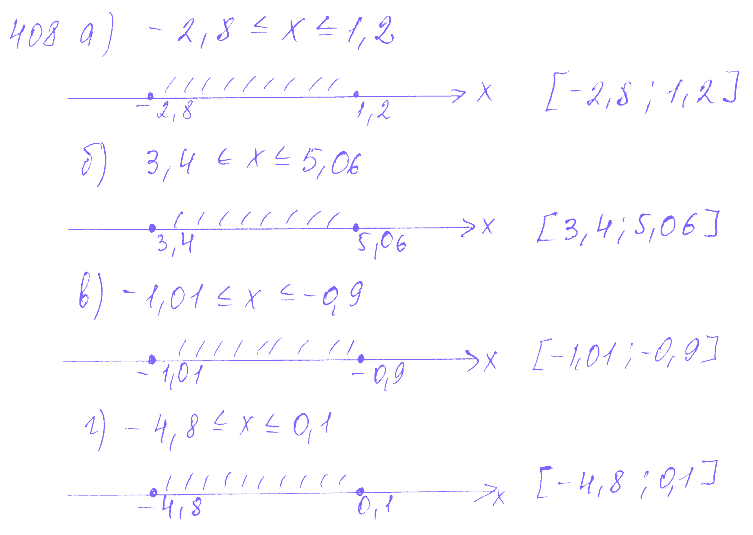 408 а) -2,8 ≤ x ≤ 1,2
-2,8 1,2 x [-2,8 ; 1,2]
б) 3,4 ≤ x ≤ 5,06
3,4 5,06 x [3,4 ; 5,06]
в) -1,01 ≤ x ≤ -0,9
-1,01 -0,9 x [-1,01 ; -0,9]
г) -4,8 ≤ x ≤ 0,1
-4,8 0,1 x [-4,8 ; 0,1]